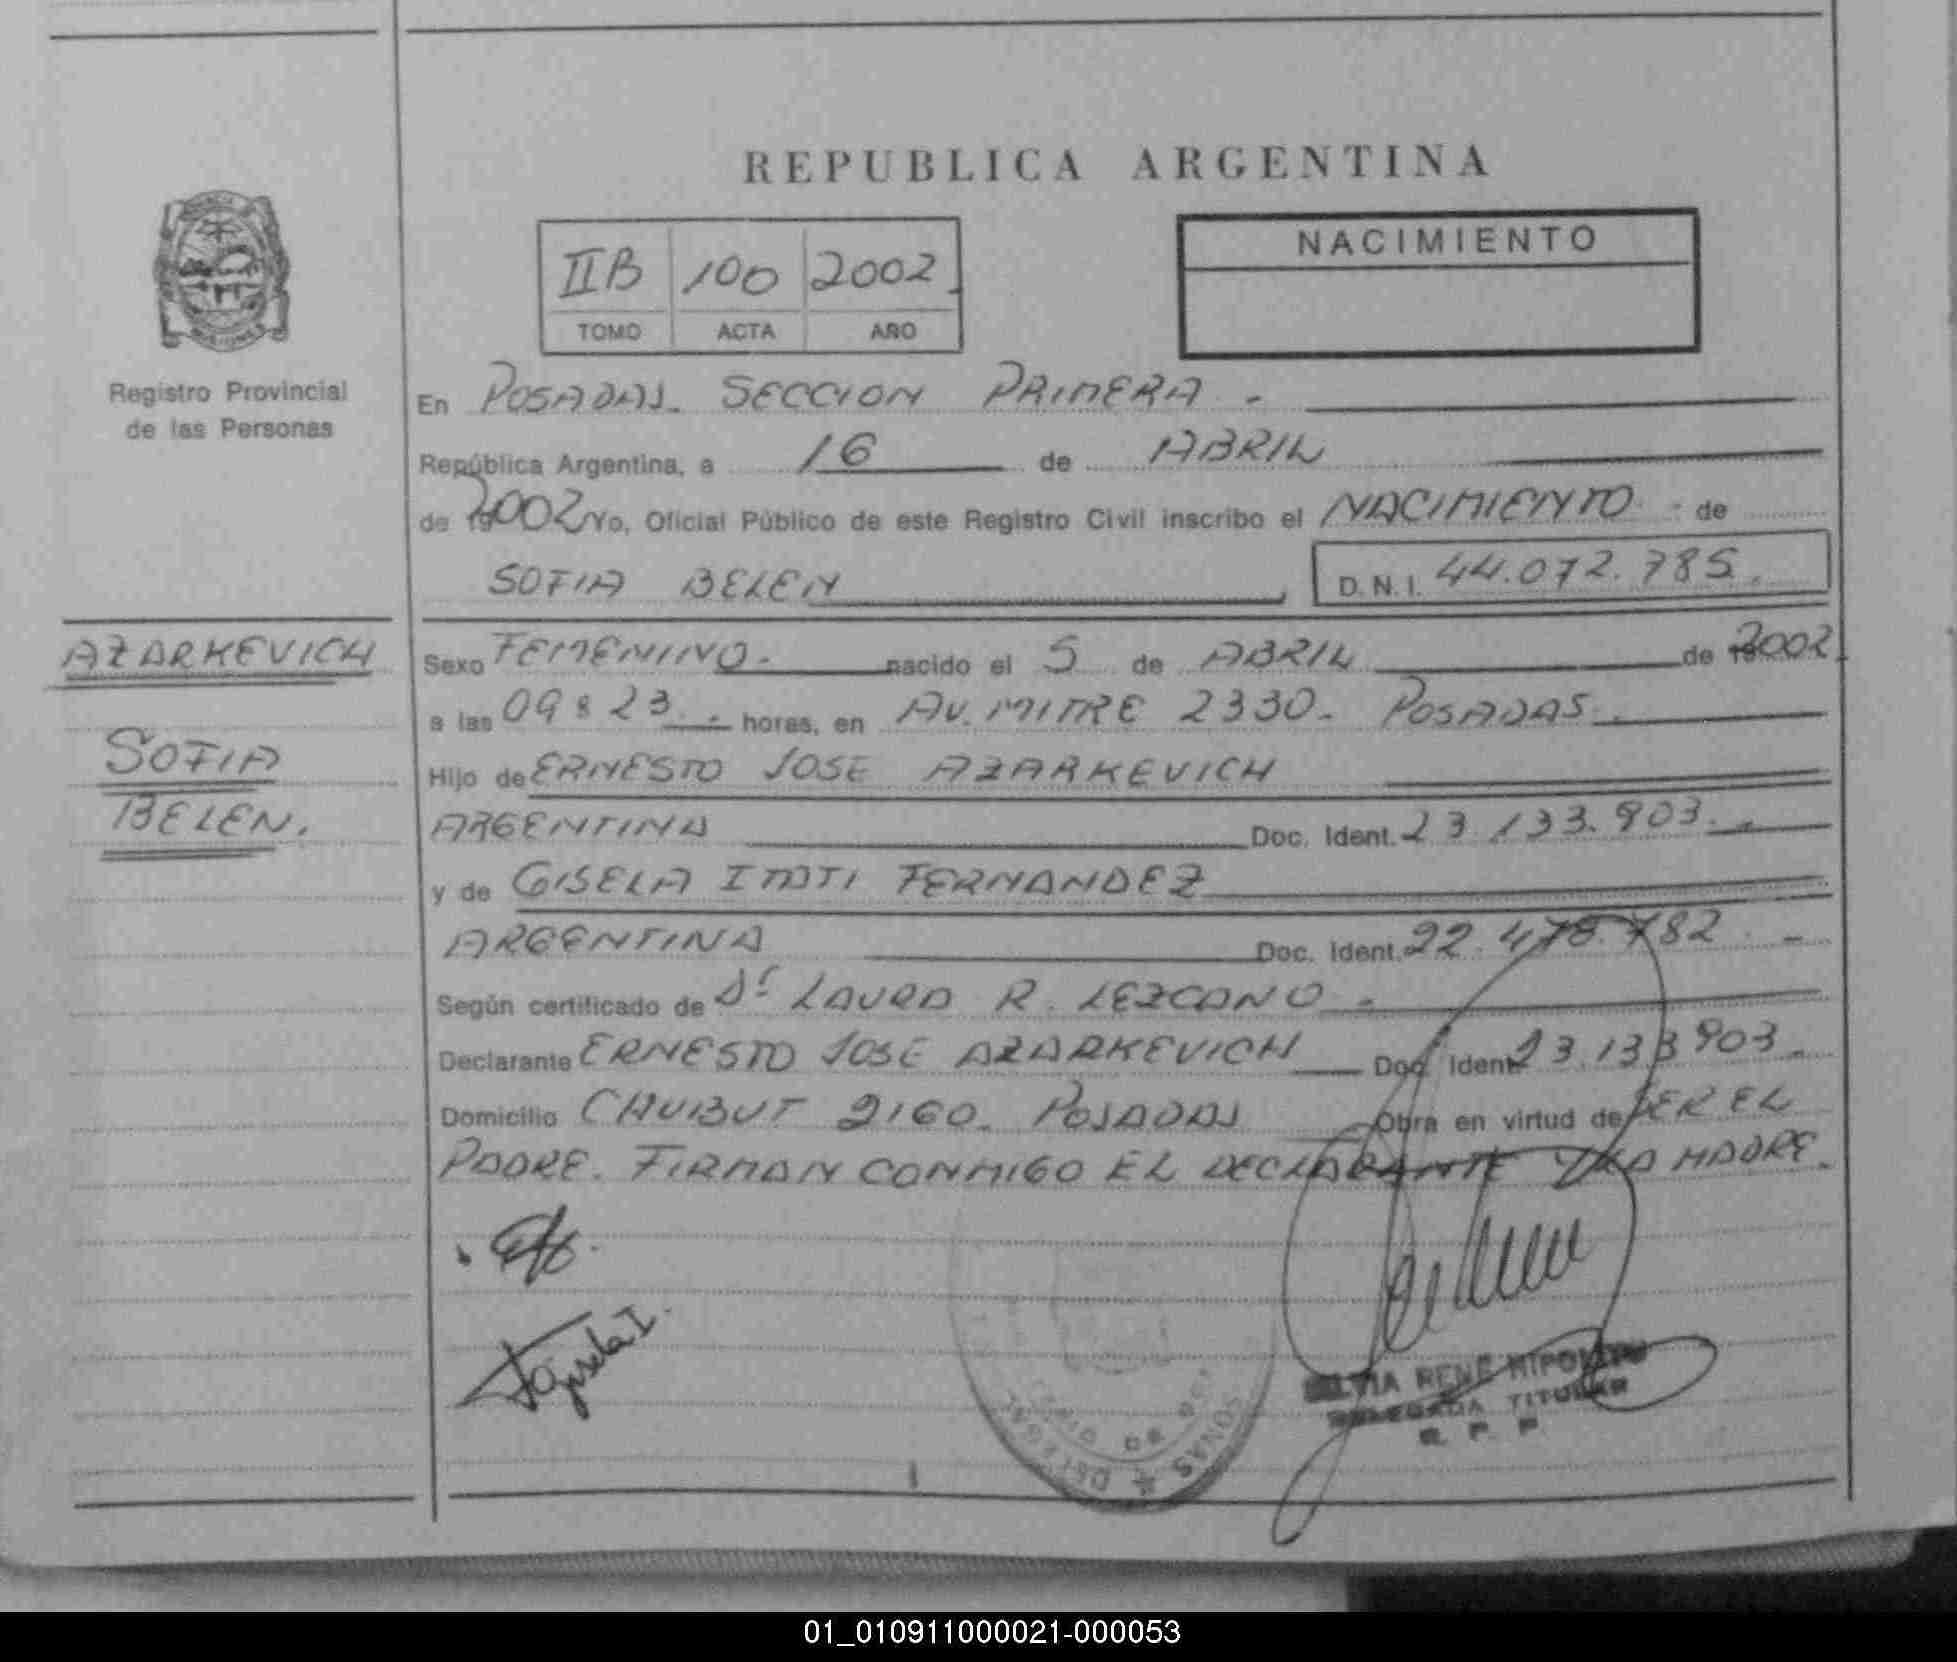 REPUBLICA ARGENTINA
IIB 100 2002
TOMO ACTA AÑO
NACIMIENTO
Registro Provincial
de las Personas
En POSADAS. SECCION PRIMERA.-
República Argentina, a 16 de ABRIL
de 2002 Yo, Oficial Público de este Registro Civil inscribo el NACIMIENTO de
SOFIA BELEN D.N.I. 44.072.785.
AZARKEVICH
SOFIA
BELEN.
Sexo FEMENINO.- nacido el 5 de ABRIL de 2002
a las 09 : 23.- horas, en AV. MITRE 2330. POSADAS.
Hijo de ERNESTO JOSE AZARKEVICH
ARGENTINA Doc. Ident. 23.133.903.-
y de GISELA FERNANDEZ
ARGENTINA Doc. Ident. 22.478.782.-
Según certificado de LAURA R. LEZCANO.-
Declarante ERNESTO JOSE AZARKEVICH Doc. Ident. 23.133.903.-
Domicilio CHUBUT 2160. POSADAS Obra en virtud de SER EL
PADRE. FIRMAN CONMIGO EL DECLARANTE Y LA MADRE.
Gisela I.
RENE HIPOLITO
DELEGADA TITULAR
R. P. P.
01_010911000021-000053